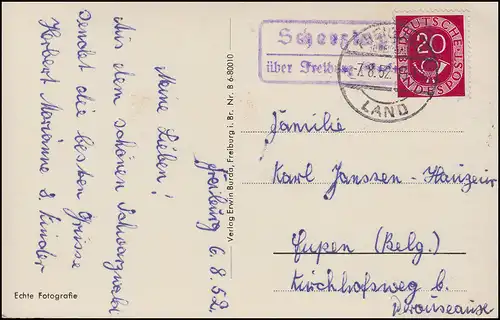 Freiburg 6.8.52.
Meine Lieben!
Aus dem schönen Schwarzwald
sendet die besten Grüsse
Herbert Marianne & Kinder
Echte Fotografie
Verlag Erwin Burda, Freiburg i. Br. Nr. B 6-80010
über Freiburg
7.8.52
LAND
DEUTSCHE
BUNDESPOST
20
Familie
Karl Janssen-Hauzeur
Eupen (Belg.)
Kirchhofsweg b.